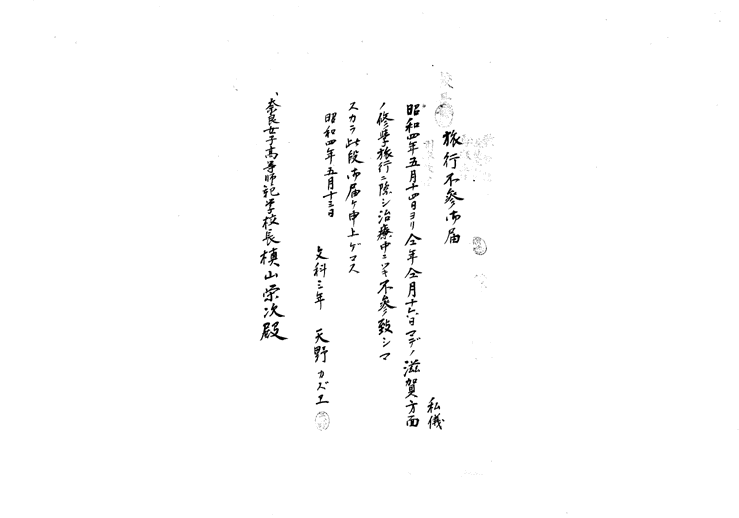 旅行不参御届
私儀
昭和四年五月十四日ヨリ仝年仝月十六日マデノ滋賀方面
ノ修学旅行ニ際シ治療中ニツキ不参致シマ
スカラ此段御届ケ申上ゲマス
昭和四年五月十三日
文科三年 天野カズヱ
奈良女子高等師範学校長槙山栄次殿